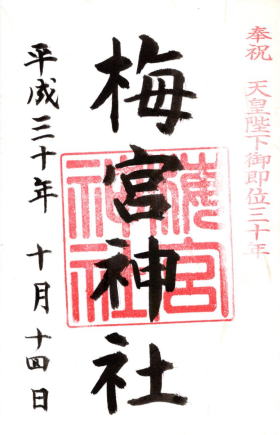 奉祝 天皇陛下御即位三十年
梅宮神社
平成三十年 十月十四日